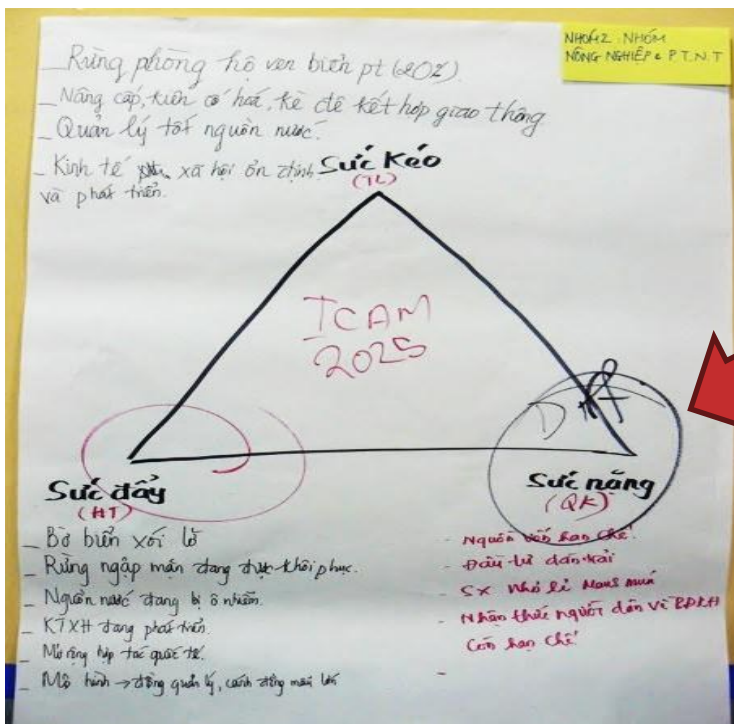 NHÓM 2: NHÓM
NÔNG NGHIỆP & P.T.N.T
_ Rừng phòng hộ ven biển pt
_ Nâng cấp, kiên cố hoá, kè đê kết hợp giao thông
_ Quản lý tốt nguồn nước.
_ Kinh tế xã hội ổn định
và phát triển.
Sức Kéo
(TL)
ICAM
2025
Sức đẩy
(HT)
_ Bờ biển xói lở
_ Rừng ngập mặn đang được khôi phục.
_ Nguồn nước đang bị ô nhiễm.
_ KTXH đang phát triển.
_ Mở rộng hợp tác quốc tế.
_ Mô hình → đồng quản lý, cánh đồng mẫu lớn
Sức nặng
(QK)
- Nguồn vốn hạn chế.
- Đầu tư dàn trải
- SX nhỏ lẻ manh mún
- Nhận thức người dân về BĐKH
còn hạn chế
-